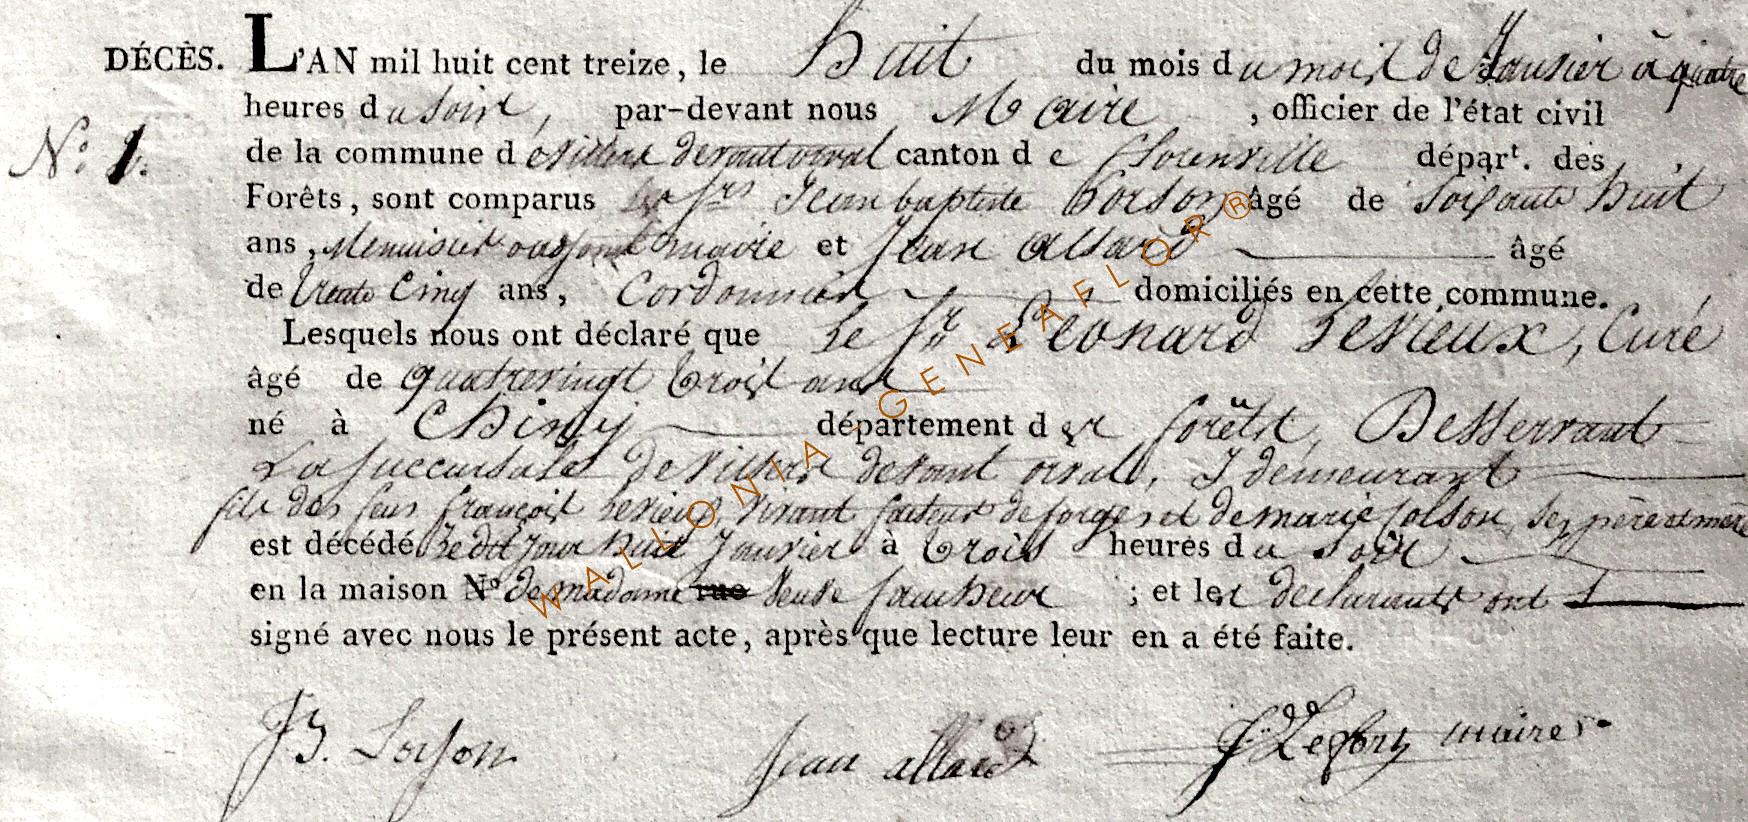 DÉCÈS. L'AN mil huit cent treize, le huit du mois du mois de Janvier à quatre
heures du soir, par-devant nous Maire, officier de l'état civil
N.º 1. de la commune de villers devant orval canton de florenville départ. des
Forêts, sont comparus les srs Jean baptiste âgé de soixante huit
ans, Menuisier et Jean allard âgé
de trente Cinq ans, Cordonnier domiciliés en cette commune.
Lesquels nous ont déclaré que le sr Leonard Levieux, Curé
âgé de quatrevingt trois ans
né à Chiny département des forêts, Desservant
La succursale de villers devant orval, Y demeurant
fils des feus françois Levieux, vivant facteur de forges et de marie Colson, ses père et mère
est décédé ledit jour huit Janvier à trois heures du soir
en la maison Nº de madame rue veuve faucheur ; et les declarants ont
signé avec nous le présent acte, après que lecture leur en a été faite.
JB. Jean allard maire
WALLONIA - GENEAFLOR®